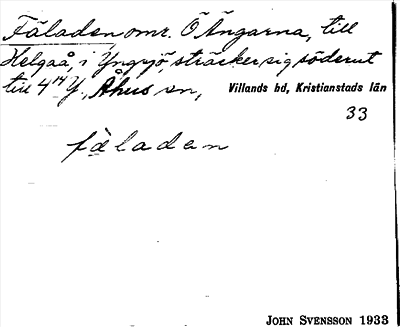 Fäladen omr. Ö Ängarna, till
Helgaå, i Yngsjö, sträcker sig söderut
till 4 14 Y, Åhus sn,
Villands hd, Kristianstads län
33
fäladen
JOHN SVENSSON 1933